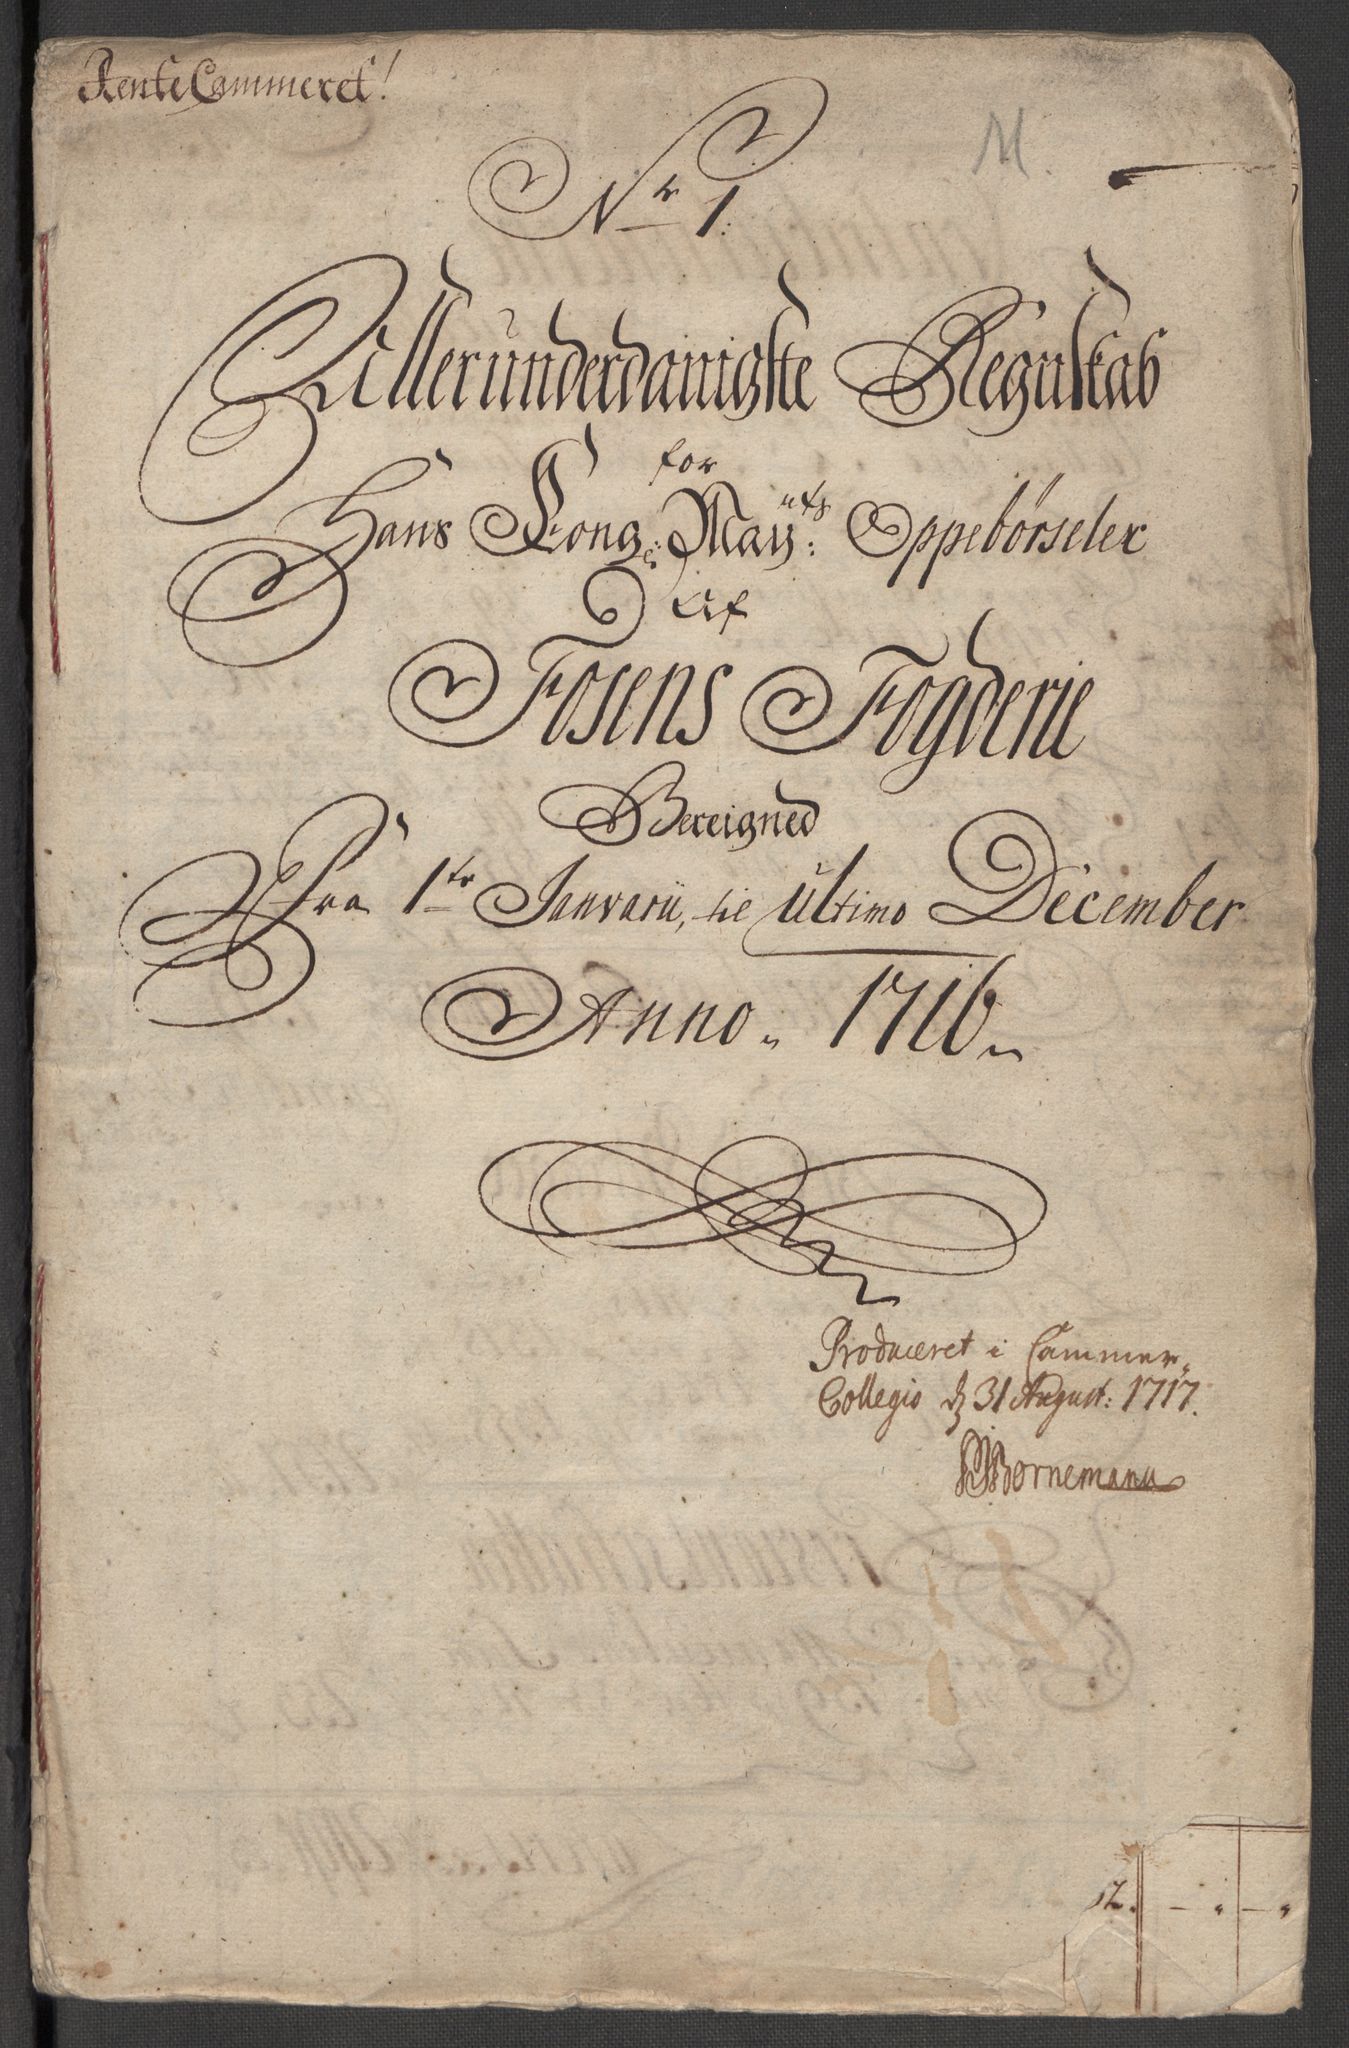 RenteCammeret!
Nr 1.
Allerunderdanigste Regnskab
for
Hans Kong: Mayts: Oppebørseler
Af
Fosens Fogderie
Bereigned
Fra 1te Januarii, til ultimo December
Anno 1716
Produceret i Cammer-
Collegio d 31 August: 1717.
Bornemann